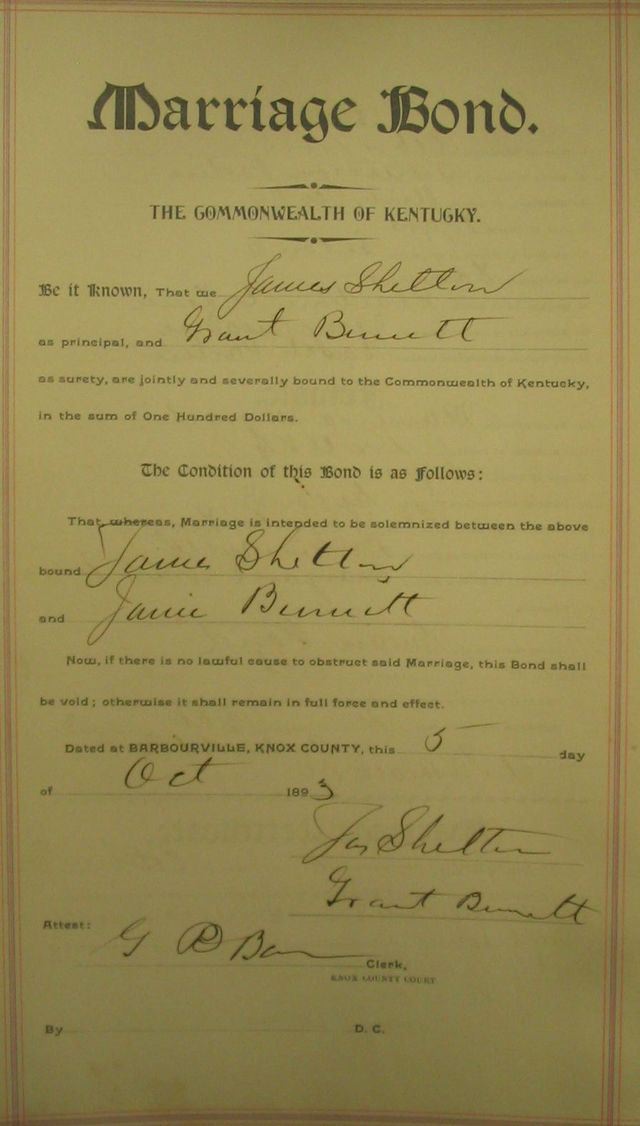 Marriage Bond.
THE COMMONWEALTH OF KENTUCKY.
Be it Known, That we James Shelton
as principal, and Grant Bennett
as surety, are jointly and severally bound to the Commonwealth of Kentucky,
in the sum of One Hundred Dollars.
The Condition of this Bond is as Follows:
That, whereas, Marriage is intended to be solemnized between the above
bound James Shelton
and Janie Bennett
Now, if there is no lawful cause to obstruct said Marriage, this Bond shall
be void; otherwise it shall remain in full force and effect.
Dated at BARBOURVILLE, KNOX COUNTY, this 5 day
of Oct 1893
Jas Shelton
Grant Bennett
Attest:
G
Clerk,
KNOX COUNTY COURT
By D. C.